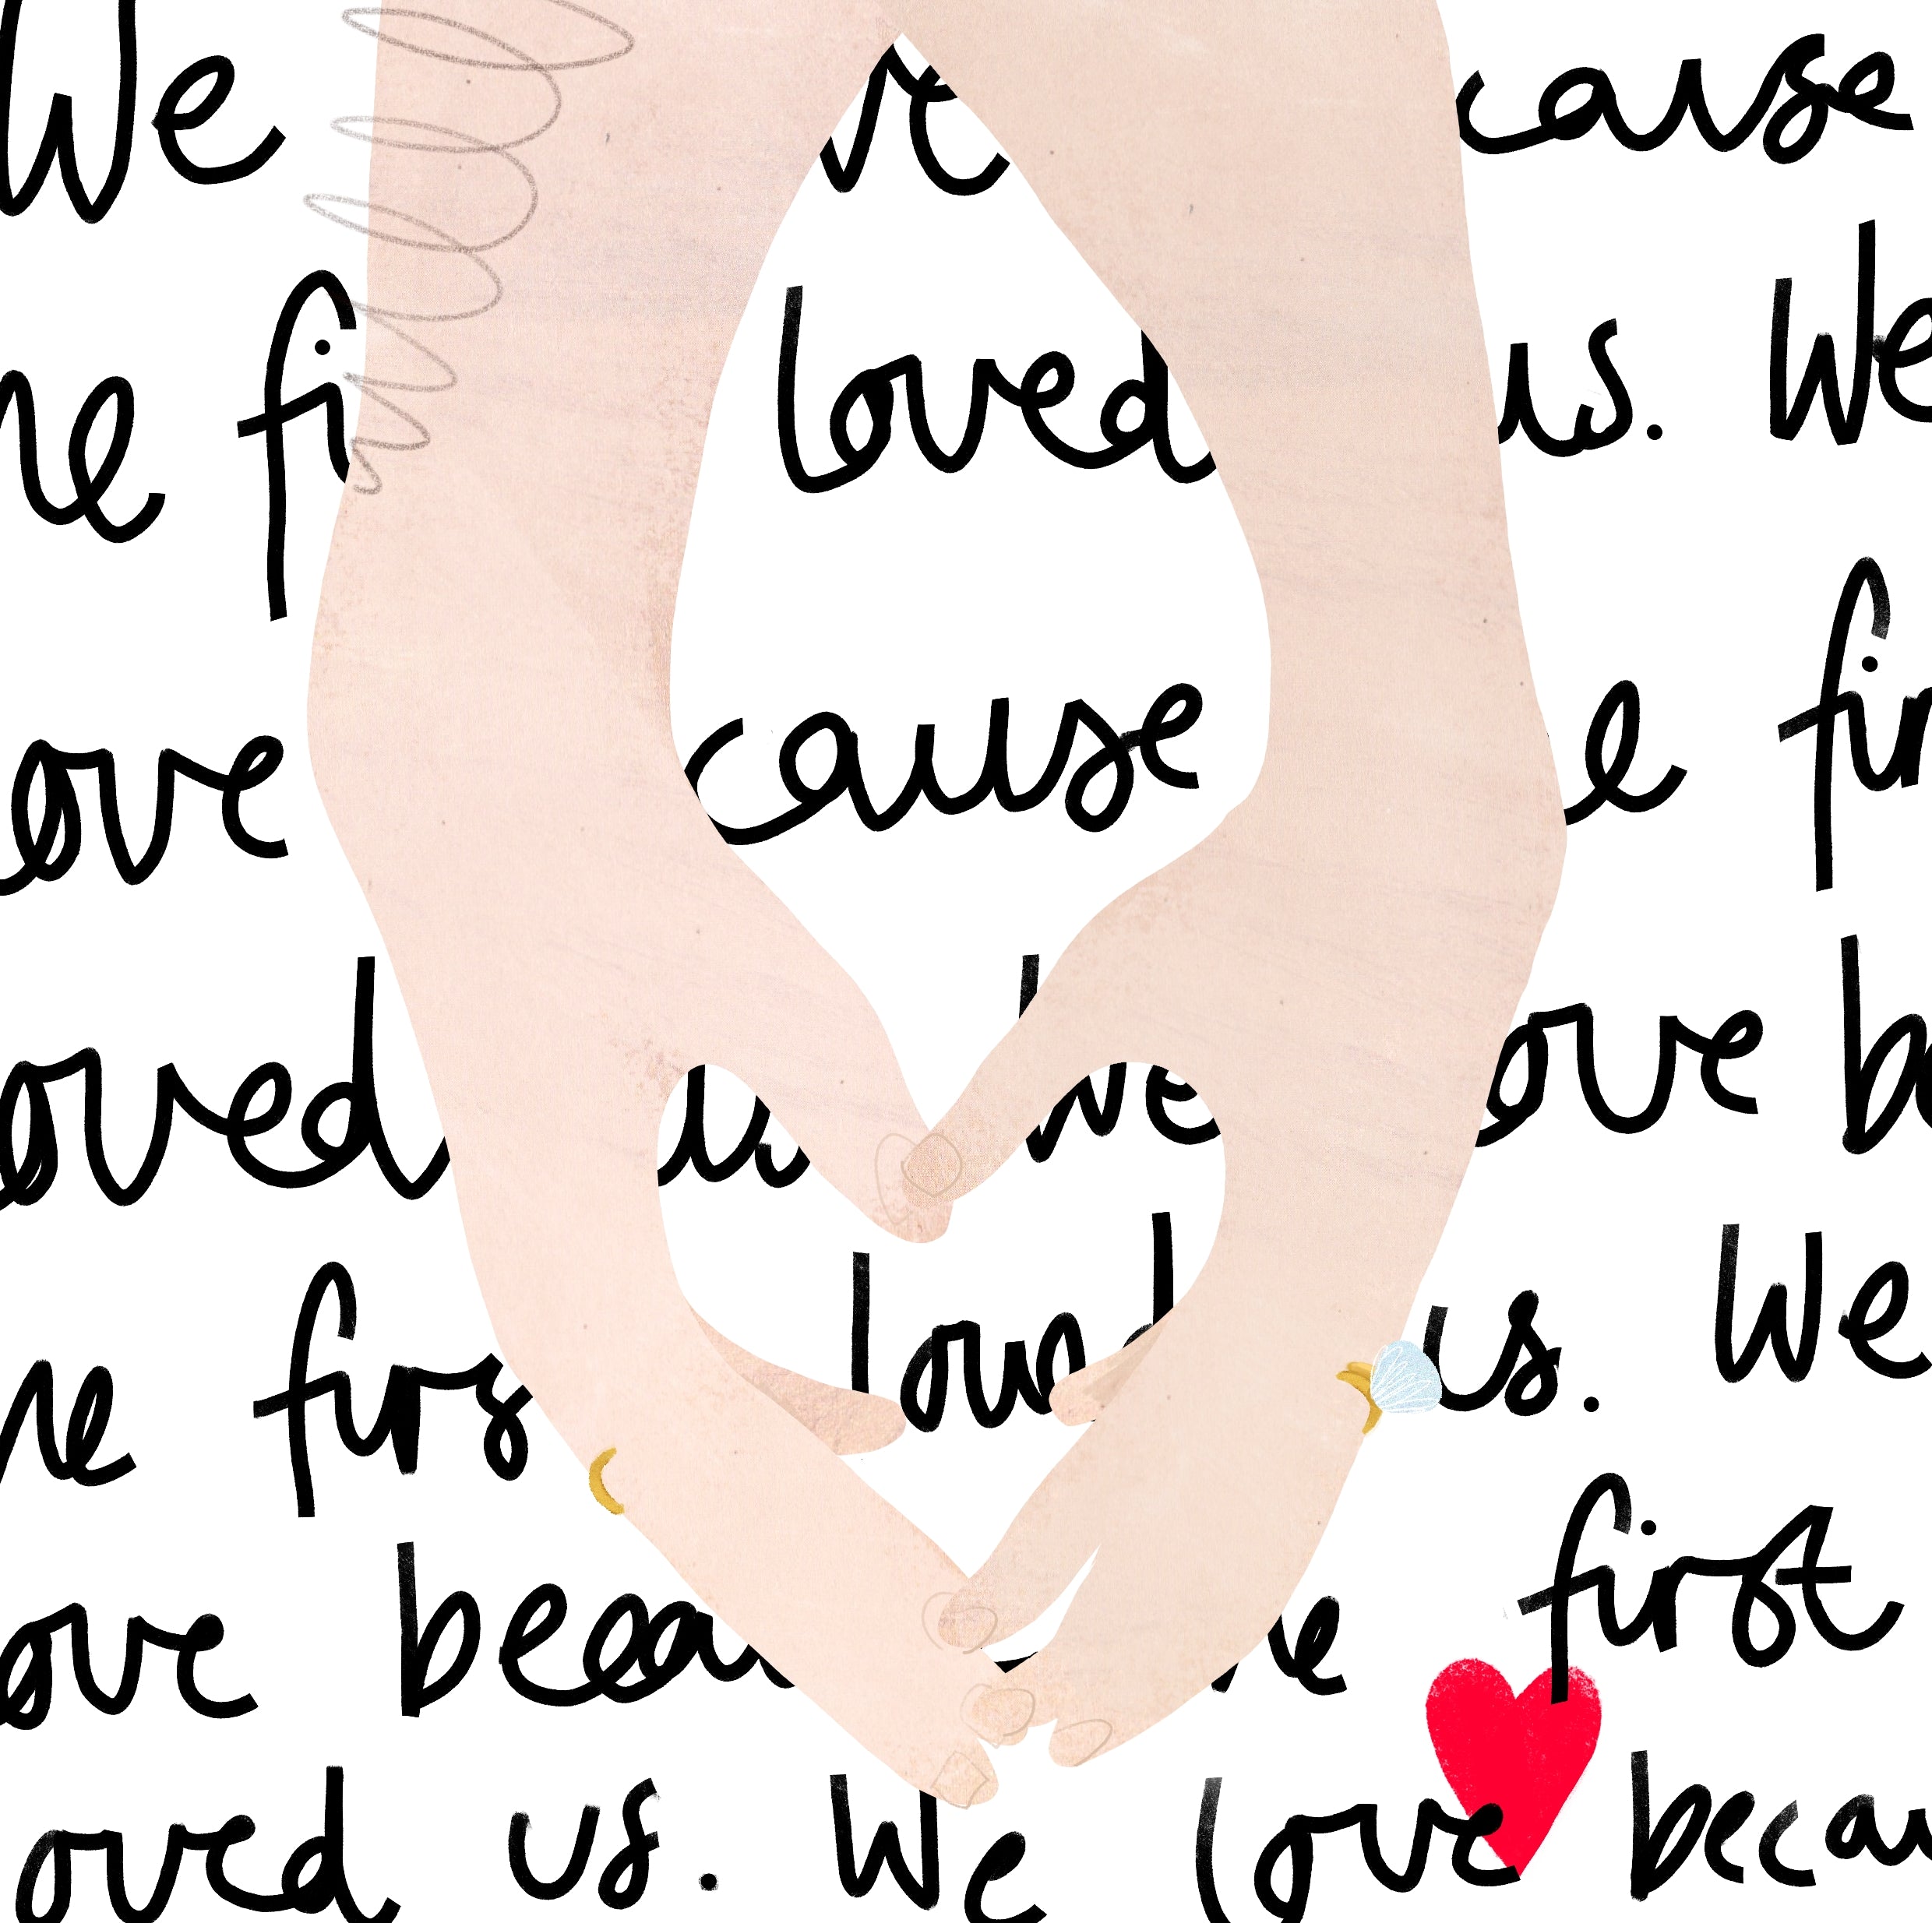 We ve cause
he fi loved us. We
ove cause e fir
oved us We ove be
he firs loved us. We
ove becau he first
oved us. We love becau